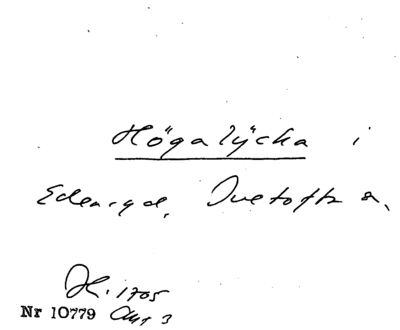 Högalÿcka i
Edenryd, Ivetofta s.
1705
Nr 10779 Akt 3